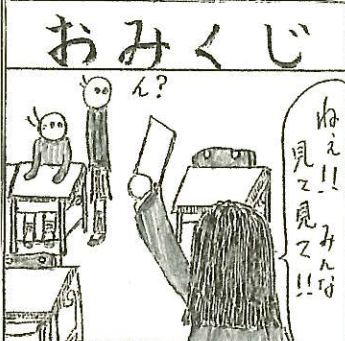 おみくじ
ねぇ!!みんな
見て見て!!
ん?